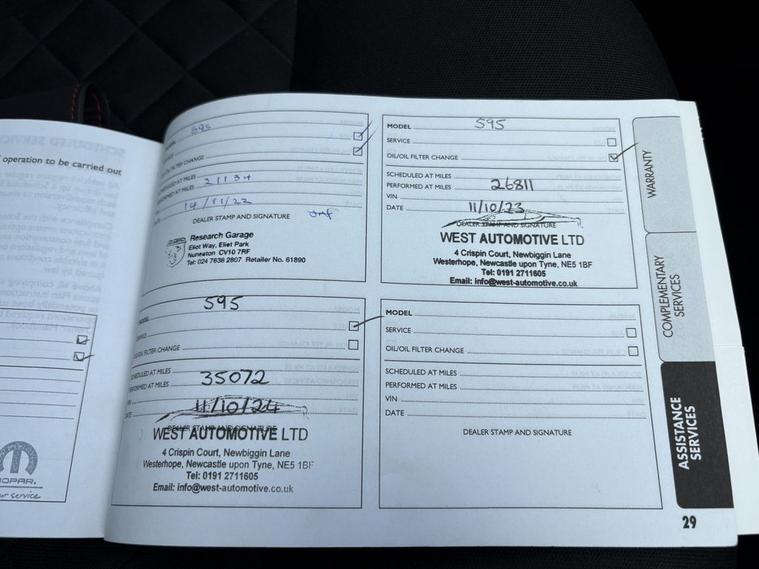 operation to be carried out
OPAR.
service
595
OIL FILTER CHANGE
SCHEDULED AT MILES 21134
PERFORMED AT MILES
14/11/22
DEALER STAMP AND SIGNATURE
Research Garage
Eliot Way, Eliot Park
Nuneaton CV10 7RF
Tel: 024 7638 2807 Retailer No. 61890
MODEL 595
SERVICE
OIL/OIL FILTER CHANGE
SCHEDULED AT MILES
PERFORMED AT MILES 26811
VIN
DATE 11/10/23
DEALER STAMP AND SIGNATURE
WEST AUTOMOTIVE LTD
4 Crispin Court, Newbiggin Lane
Westerhope, Newcastle upon Tyne, NE5 1BF
Tel: 0191 2711605
Email: info@west-automotive.co.uk
MODEL 595
SERVICE
OIL/OIL FILTER CHANGE
SCHEDULED AT MILES
PERFORMED AT MILES 35072
VIN
DATE 11/10/24
DEALER STAMP AND SIGNATURE
WEST AUTOMOTIVE LTD
4 Crispin Court, Newbiggin Lane
Westerhope, Newcastle upon Tyne, NE5 1BF
Tel: 0191 2711605
Email: info@west-automotive.co.uk
MODEL
SERVICE
OIL/OIL FILTER CHANGE
SCHEDULED AT MILES
PERFORMED AT MILES
VIN
DATE
DEALER STAMP AND SIGNATURE
WARRANTY
COMPLEMENTARY
SERVICES
ASSISTANCE
SERVICES
29